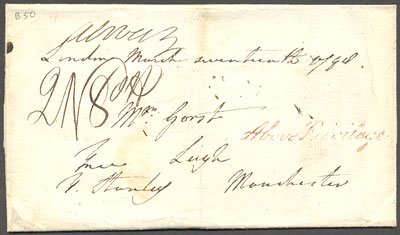 B50
London March seventeenth 1798
2N8
Mrs Gorst
Above Privilege
Free Leigh
Stanley Manchester